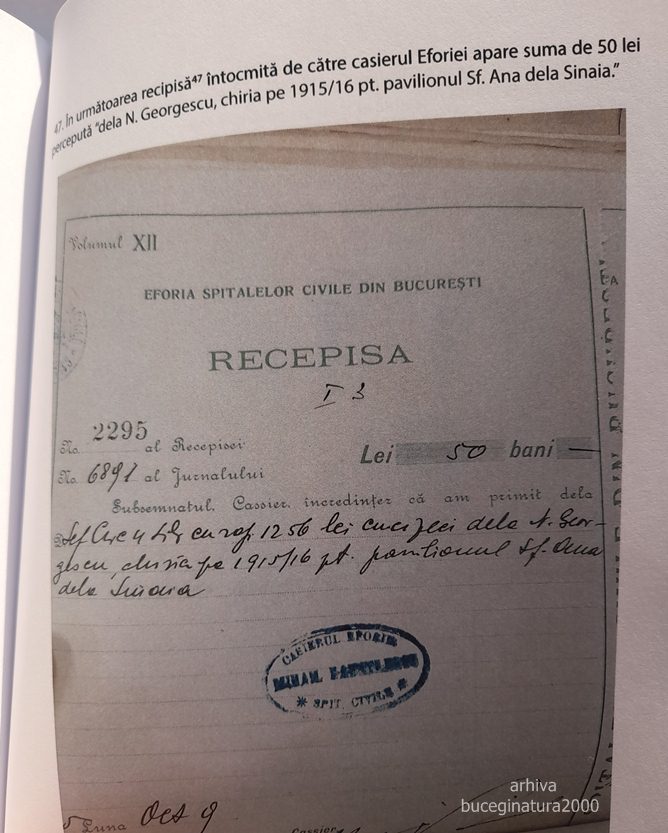 47. În următoarea recipisă⁴⁷ întocmită de către casierul Eforiei apare suma de 50 lei
percepută "dela N. Georgescu, chiria pe 1915/16 pt. pavilionul Sf. Ana dela Sinaia."
Volumul XII
EFORIA SPITALELOR CIVILE DIN BUCUREȘTI
RECEPISA
I 3
No. 2295 al Recepisei
No. 6891 al Jurnalului
Lei 50 bani —
Subsemnatul, Cassier, încredințez că am primit dela
Șef Circ 4 cu rap. 1256 lei cincizeci dela N. Geor-
gescu, chiria pe 1915/16 pt. pavilionul Sf. Ana
dela Sinaia
CASIERUL EFORIEI
MIHAIL
* SPIT. CIVILE *
Luna Oct 9
Cassier
arhiva
buceginatura2000